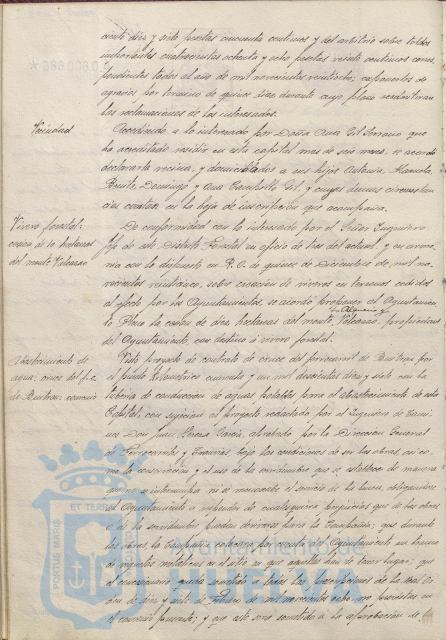 ciento diez y siete pesetas cincuenta céntimos y del arbitrio sobre toldos
importantes cuatrocientas ochenta y ocho pesetas veinte céntimos corres
pondientes todos al año de mil novecientos veintiocho; exponerlos de
agravios por término de quince días durante cuyo plazo se admitirán
las reclamaciones de los interesados.
Vecindad
Accediendo a lo interesado por Doña Ana Gil Serrano que
ha acreditado residir en esta capital mas de seis meses, se acordó
declararla vecina, y domiciliados a sus hijos Antonia, Manuela,
Benito, Domingo y Ana Campillo Gil, y cuyas demas circunstan
cias constan en la hoja de inscripción que acompaña.
Vivero forestal:
cesión de diez hectáreas
del monte
De conformidad con lo interesado por el Señor Ingeniero
Jefe de este Distrito Forestal en oficio de tres del actual, y en armo
nía con lo dispuesto en R. O. de quince de Diciembre de mil no
vecientos veintiocho, sobre creación de viveros en terrenos cedidos
al efecto por los Ayuntamientos, se acordó proponer al Ayuntamien
to Pleno la cesión de diez hectáreas del monte propiedad
del Ayuntamiento, con destino a vivero forestal.
Abastecimiento de
agua: cruce del f. c.
de convenio
Visto proyecto de contrato de cruce del ferrocarril de por
el punto kilométrico cuarenta y un mil doscientos diez y siete con la
tubería de conducción de aguas potables para el abastecimiento de esta
Capital, con sujeción al proyecto redactado por el Ingeniero de Cami
nos Don Juan García, aprobado por la Dirección General
de Ferrocarriles y Tranvías, bajo las condiciones de que las obras, así co
mo la conservación y el uso de la servidumbre que se establece de manera
que no se interrumpa ni se menoscabe el servicio de la línea, obligándose
el Ayuntamiento a responder de cualesquiera perjuicios que de las obras
o de la servidumbre puedan derivarse para la Compañía; que durante
las obras, la Compañía colocará por cuenta del Ayuntamiento un
de en el sitio en que aquellas han de tener lugar; que
el concesionario queda sometido a todas las prescripciones de la Real Or
den de diez y siete de Febrero de mil novecientos ocho, no previstas en
el convenio presente; y que este sea sometido a la aprobación de la
PORTUS MAGIS
ET TERRA
Ayuntamiento de